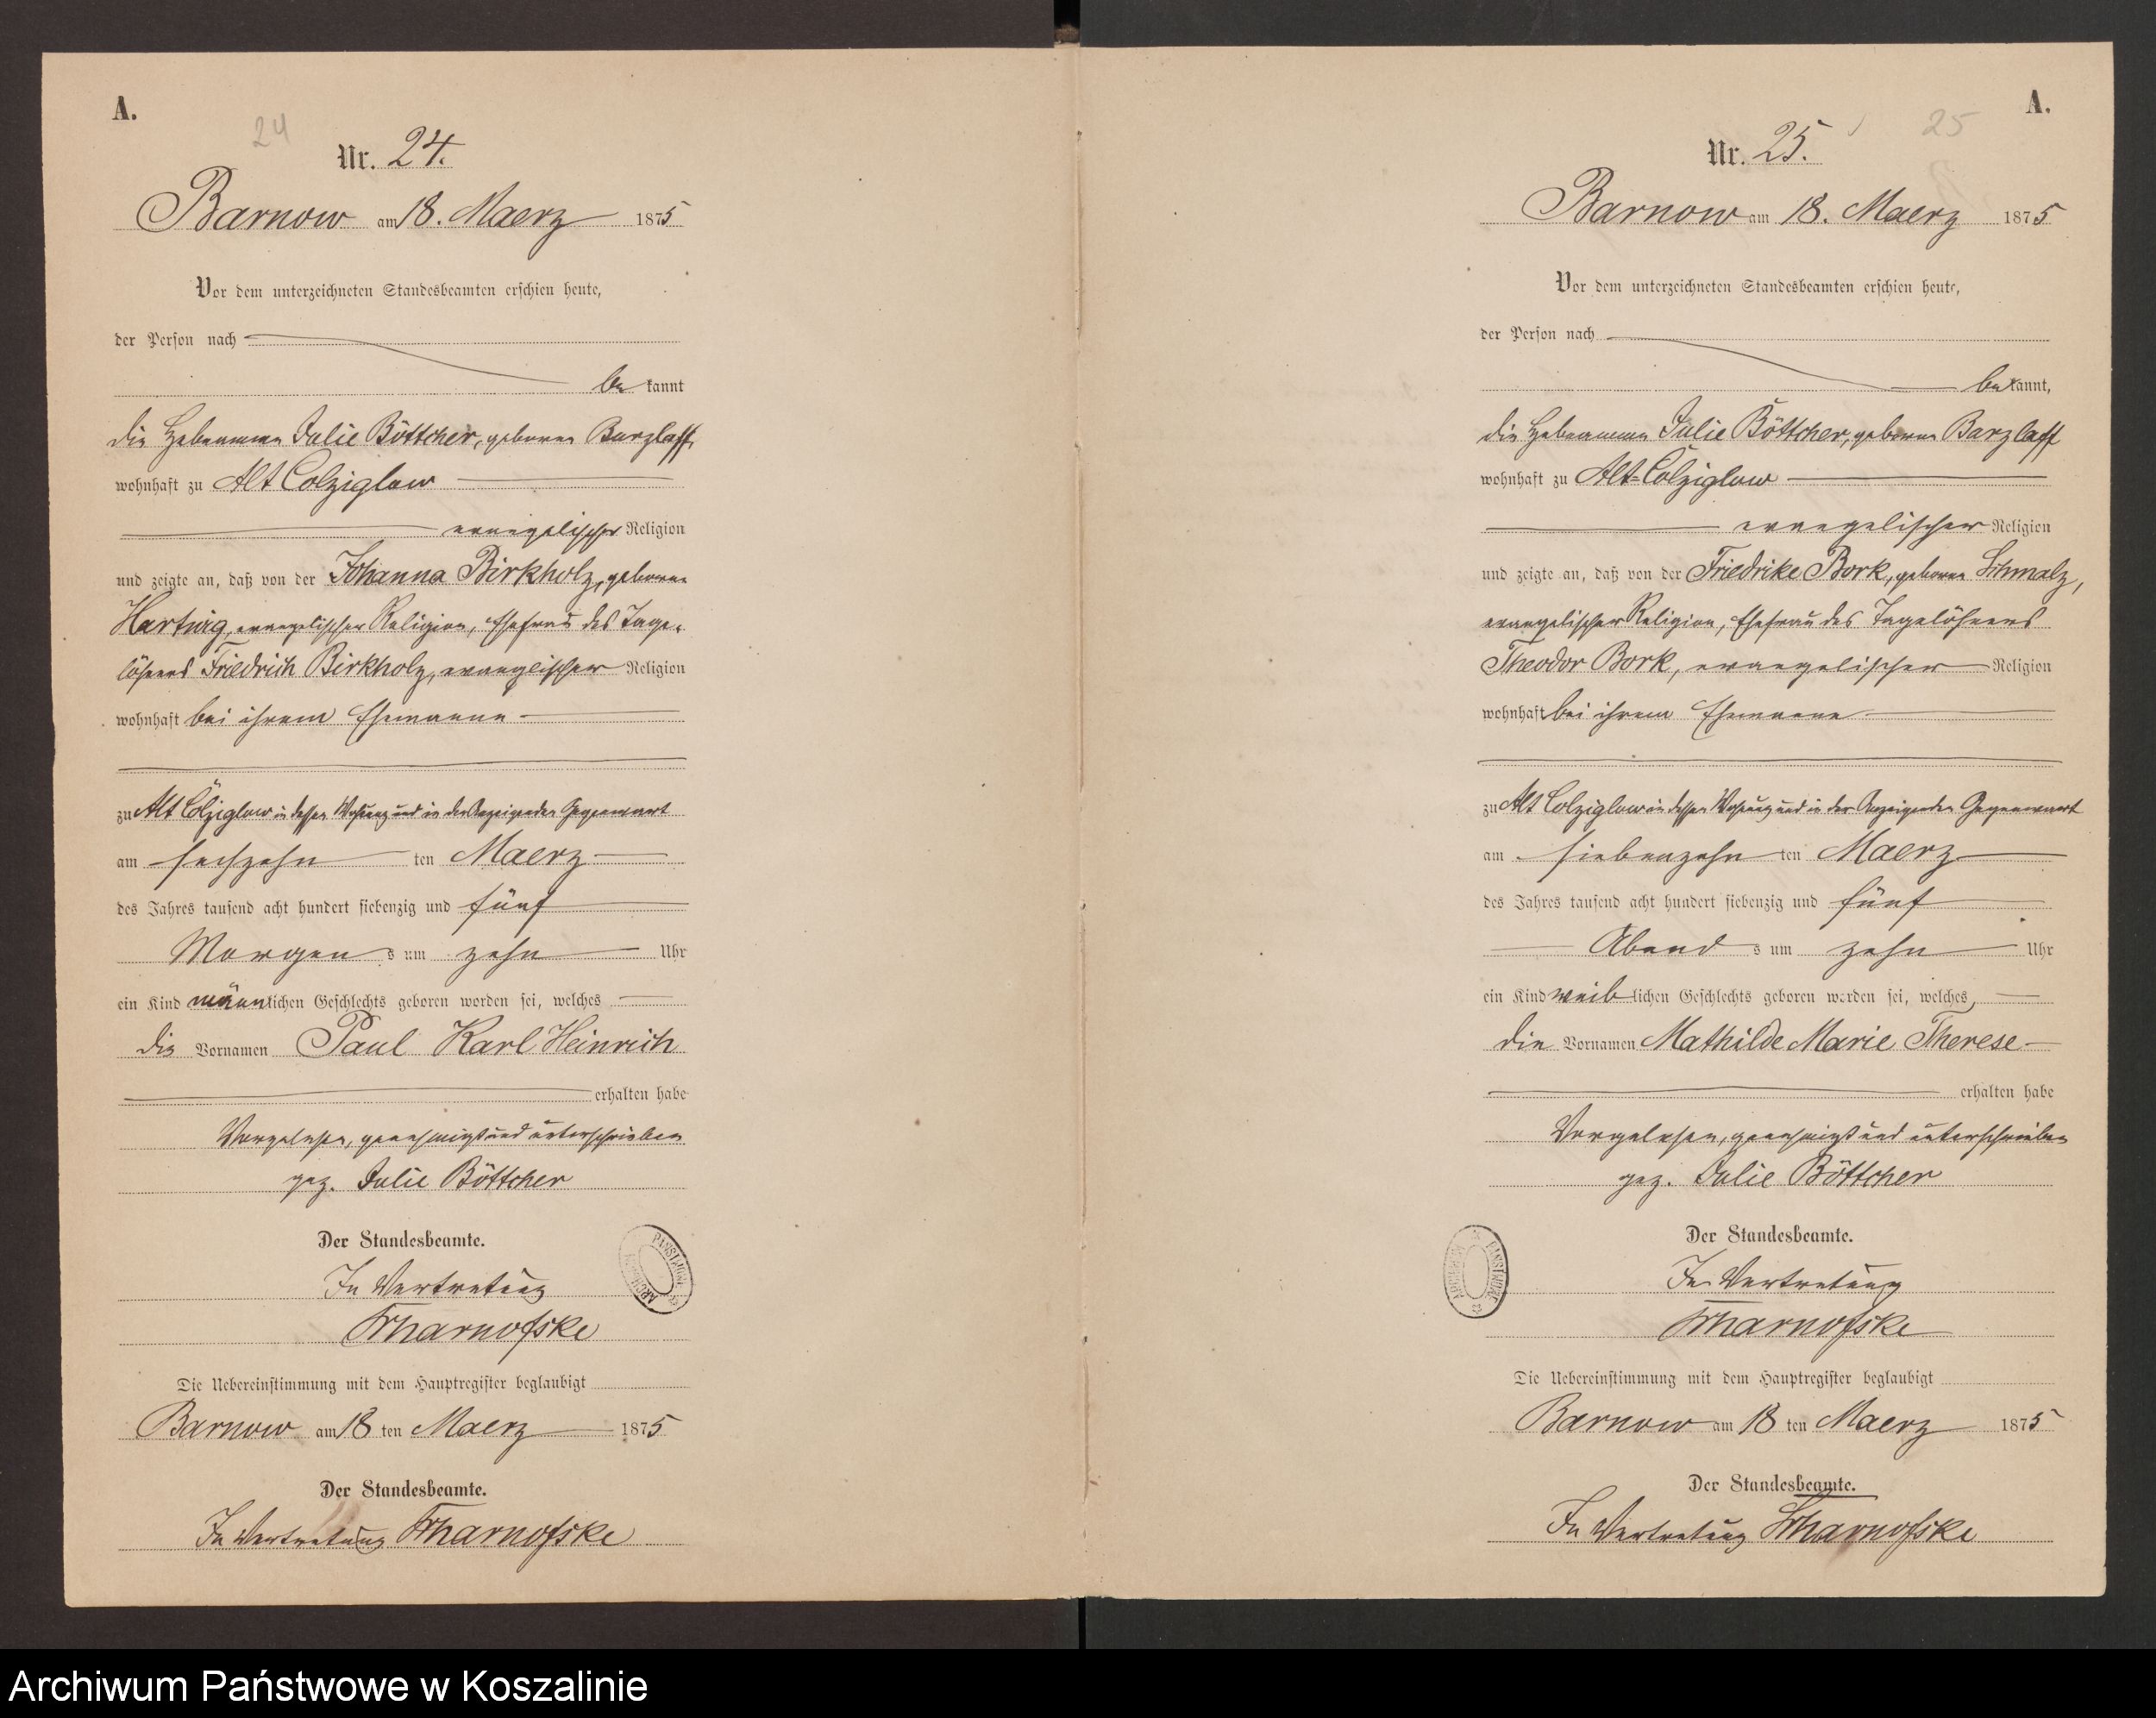 A.
24
Nr. 24.
Barnow am 18. Maerz 1875
Vor dem unterzeichneten Standesbeamten erschien heute,
der Person nach
be kannt
die Hebeamme Julie Böttcher, geborene Barzlaff,
wohnhaft zu Alt Colziglow
evangelischer Religion
und zeigte an, daß von der Johanna Birkholz, geborene
Hartwig, evangelischer Religion, Ehefrau des Tage-
löhners Friedrich Birkholz, evanglischer Religion
wohnhaft bei ihrem Ehemanne
zu Alt Colziglow in dessen Wohnung und in der Anzeigenden Gegenwart
am sechzehn ten Maerz
des Jahres tausend acht hundert siebenzig und fünf
Morgen s um zehn Uhr
ein Kind männlichen Geschlechts geboren worden sei, welches
die Vornamen Paul Karl Heinrich
erhalten habe
Vorgelesen, genehmigt und unterschrieben
gez. Julie Böttcher
Der Standesbeamte.
In Vertretung
ARCHIWUM PAŃSTWOWE
Die Uebereinstimmung mit dem Hauptregister beglaubigt
Barnow am 18 ten Maerz 1875
Der Standesbeamte.
In Vertretung
A.
25
Nr. 25.
Barnow am 18. Maerz 1875
Vor dem unterzeichneten Standesbeamten erschien heute,
der Person nach
bekannt,
die Hebeamme Julie Böttcher, geborene Barzlaff
wohnhaft zu Alt-Colziglow
evangelischer Religion
und zeigte an, daß von der Friedrike Bork, geborene Schmalz,
evangelischer Religion, Ehefrau des Tagelöhners
Theodor Bork, evangelischer Religion
wohnhaft bei ihrem Ehemanne
zu Alt Colziglow in dessen Wohnung und in der Anzeigenden Gegenwart
am siebenzehn ten Maerz
des Jahres tausend acht hundert siebenzig und fünf
Abend s um zehn Uhr
ein Kind weiblichen Geschlechts geboren worden sei, welches
die Vornamen Mathilde Marie Therese
erhalten habe
Vorgelesen, genehmigt und unterschrieben
gez. Julie Böttcher
Der Standesbeamte.
In Vertretung
ARCHIWUM PAŃSTWOWE
Die Uebereinstimmung mit dem Hauptregister beglaubigt
Barnow am 18 ten Maerz 1875
Der Standesbeamte.
In Vertretung
Archiwum Państwowe w Koszalinie